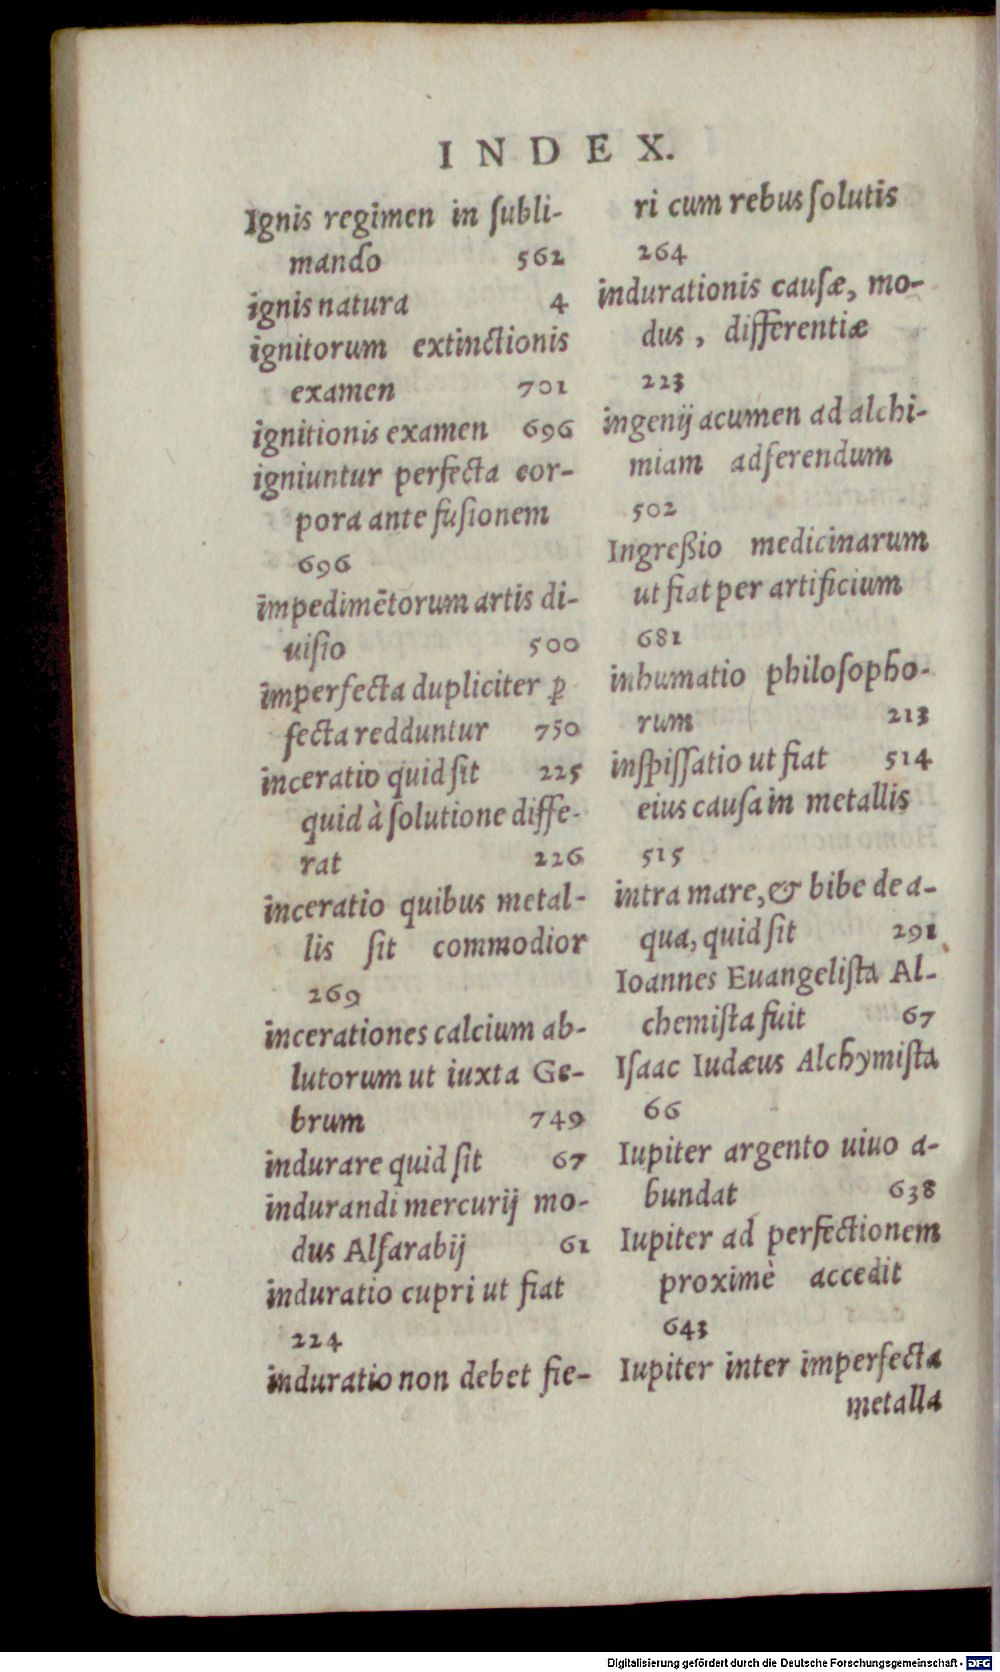 INDEX.
Ignis regimen in ſubli-
mando 562
ignis natura 4
ignitorum extinctionis
examen 701
ignitionis examen 696
igniuntur perfecta cor-
pora ante fuſionem
696
impedimētorum artis di-
uiſio 500
imperfecta dupliciter ꝑ
fecta redduntur 750
inceratio quid ſit 225
quid à ſolutione diffe-
rat 226
inceratio quibus metal-
lis ſit commodior
269
incerationes calcium ab-
lutorum ut iuxta Ge-
brum 749
indurare quid ſit 67
indurandi mercurij mo-
dus Alfarabij 61
induratio cupri ut fiat
224
induratio non debet fie-
ri cum rebus ſolutis
264
indurationis cauſæ, mo-
dus, differentiæ
223
ingenij acumen ad alchi-
miam adferendum
502
Ingreßio medicinarum
ut fiat per artificium
681
inhumatio philoſopho-
rum 213
inſpiſſatio ut fiat 514
eius cauſa in metallis
515
intra mare, & bibe de a-
qua, quid ſit 291
Ioannes Euangeliſta Al-
chemiſta fuit 67
Iſaac Iudæus Alchymiſta
66
Iupiter argento uiuo a-
bundat 638
Iupiter ad perfectionem
proximè accedit
643
Iupiter inter imperfecta
metalla
Digitalisierung gefördert durch die Deutsche Forschungsgemeinschaft - DFG